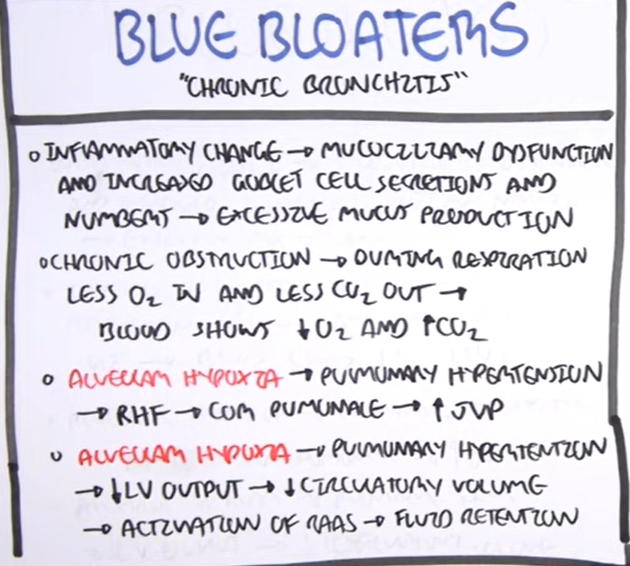 BLUE BLOATERS
"CHRONIC BRONCHITIS"
o INFLAMMATORY CHANGE → MUCOCILIARY DYSFUNCTION
AND INCREASED GOBLET CELL SECRETIONS AND
NUMBERS → EXCESSIVE MUCUS PRODUCTION
o CHRONIC OBSTRUCTION → DURING RESPIRATION
LESS O₂ IN AND LESS CO₂ OUT →
BLOOD SHOWS ↓O₂ AND ↑CO₂
o ALVEOLAR HYPOXIA → PULMONARY HYPERTENSION
→ RHF → COR PULMONALE → ↑ JVP
o ALVEOLAR HYPOXIA → PULMONARY HYPERTENTION
→ ↓LV OUTPUT → ↓CIRCULATORY VOLUME
→ ACTIVATION OF RAAS → FLUID RETENTION